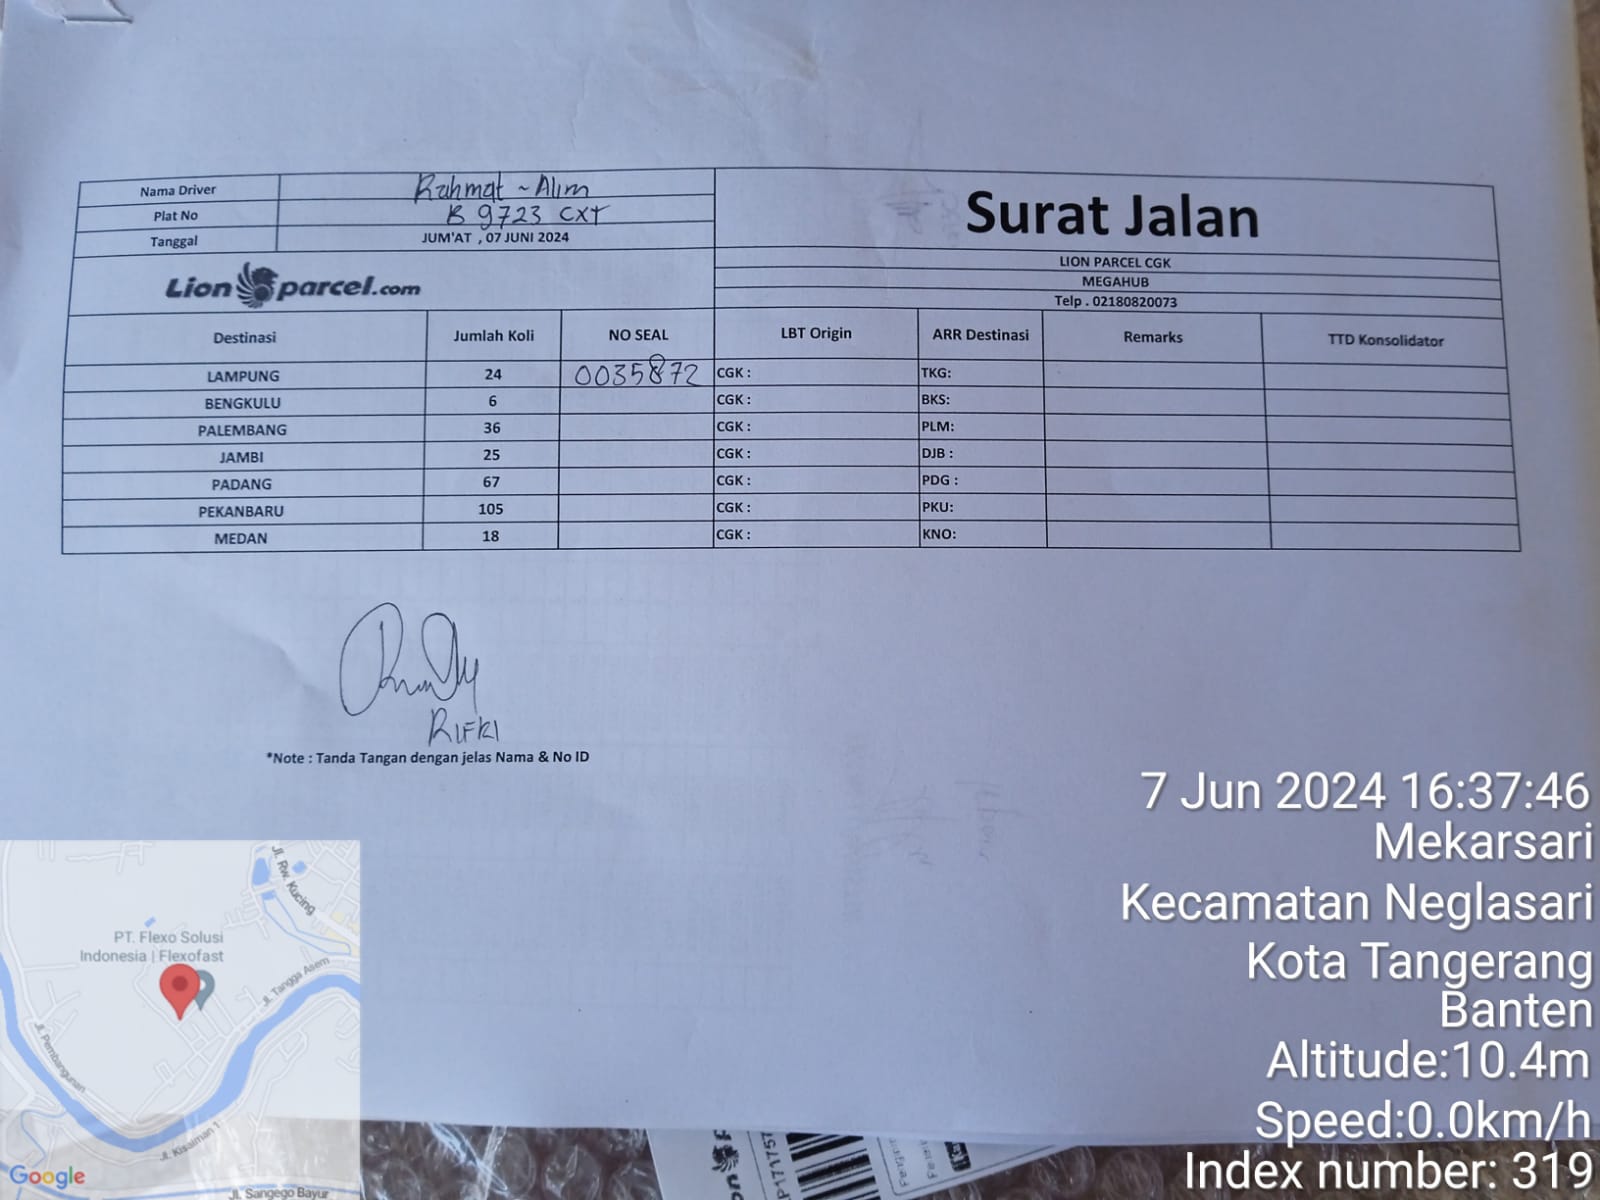 Nama Driver Rahmat ~ Alim
Plat No B 9723 CXT
Tanggal JUM'AT , 07 JUNI 2024
Surat Jalan
LION PARCEL CGK
MEGAHUB
Telp . 02180820073
Lion parcel.com
Destinasi Jumlah Koli NO SEAL LBT Origin ARR Destinasi Remarks TTD Konsolidator
LAMPUNG 24 0035872 CGK : TKG:
BENGKULU 6 CGK : BKS:
PALEMBANG 36 CGK : PLM:
JAMBI 25 CGK : DJB :
PADANG 67 CGK : PDG :
PEKANBARU 105 CGK : PKU:
MEDAN 18 CGK : KNO:
RIFKI
*Note : Tanda Tangan dengan jelas Nama & No ID
7 Jun 2024 16:37:46
Mekarsari
Kecamatan Neglasari
Kota Tangerang
Banten
Altitude:10.4m
Speed:0.0km/h
Index number: 319
Jl. Rw. Kucing
PT. Flexo Solusi
Indonesia | Flexofast
Jl. Tangga Asem
Jl. Pembangunan
Jl. Kisaiman 1
Google
Jl. Sangego Bayur